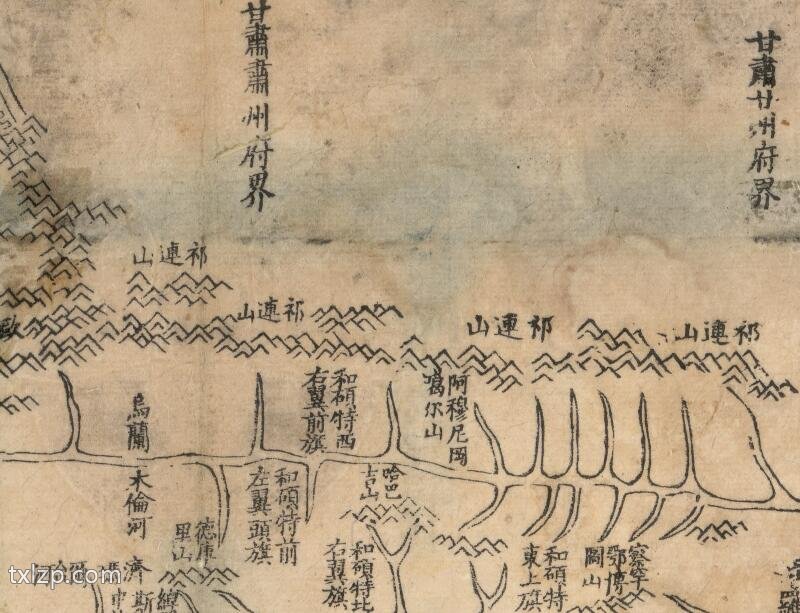 甘肅甘州府界
甘肅肅州府界
山連祁
山連祁
山連祁
山連祁
阿穆尼岡
噶尔山
和碩特西
右翼前旗
烏蘭
木倫河
哈巴
吉山
和碩特前
左翼頭旗
德庫
里山
鄂博
圖山
和碩特
東上旗
和碩特北
右翼旗
濟
斯
txlzp.com